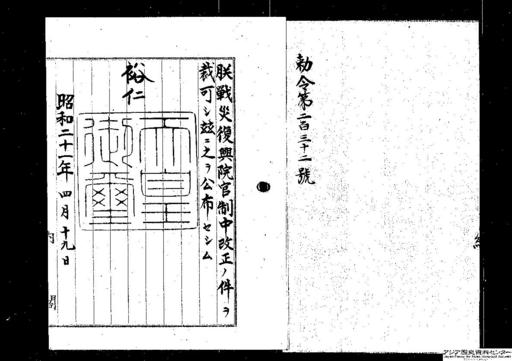 勅令第二百三十二號
朕戰災復興院官制中改正ノ件ヲ
裁可シ玆ニ之ヲ公布セシム
裕仁
天皇御璽
昭和二十一年四月十九日
内閣
アジア歴史資料センター